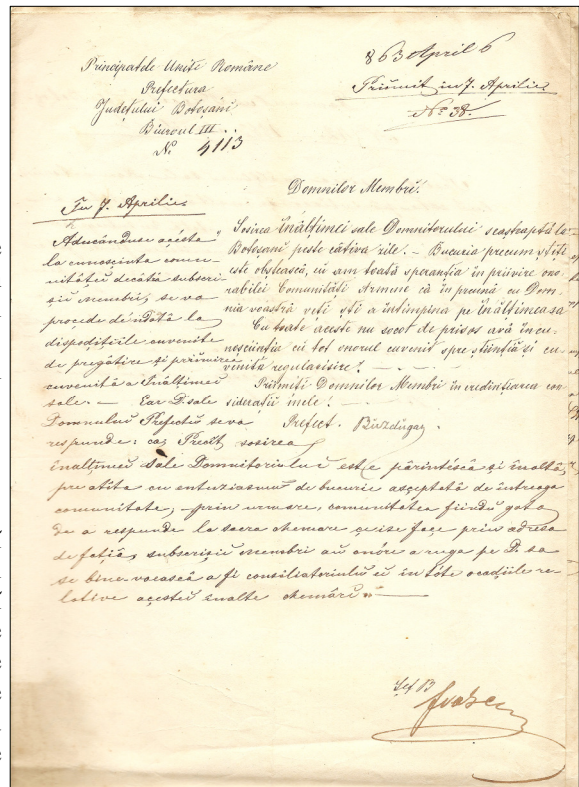 Principatele Unite Române
Prefectura
Județului Botoșani
Biuroul III
No. 4113
863 April 6
Priimit in 7. Aprilie
No 38.
Domnilor Membri!
Sosirea Înălțimei sale Domnitorului seașteaptă la
Botoșani peste câtiva zile. — Bucuria precum știți
este obștească, eu am toată speranția în privire ono
rabilei Comunități Armene că în preună cu Dom
nia voastră veți ști a întimpina pe Înălțimea sa
Cu toate aceste nu socot de prisos avă încu
noscinția cu tot onorul cuvenit spre știință și cu
venită regularisire!
Priimiți Domnilor Membri încredințarea con
siderații mele!
Prefect.
In 7. Aprilie
Aducânduse acésta
la cunoscinta comu
nitătei decătră subscri
șii membri, se va
procede déndată la
dispozițiile cuvenite
de pregătire și priimire
cuvenită a Înălțimei
sale. — Ear D. sale
Domnului Prefectu seva
respunde: că, Precât sosirea
înalțimei sale Domnitoriului este părintésca și înaltă,
pre atâta cu entuziasmu de bucurie așceptată de întreaga
comunitate, prin urmare, comunitatea fiindu gata
de a respunde la sacra chemare ce ise face prin adresa
de fația, subscrișii membri au onóre a ruga pe D. sa
se bine vocască a fi consiliatoriulu ei în tóte ocaziile re
lative acestei inalte chemări
Șef B